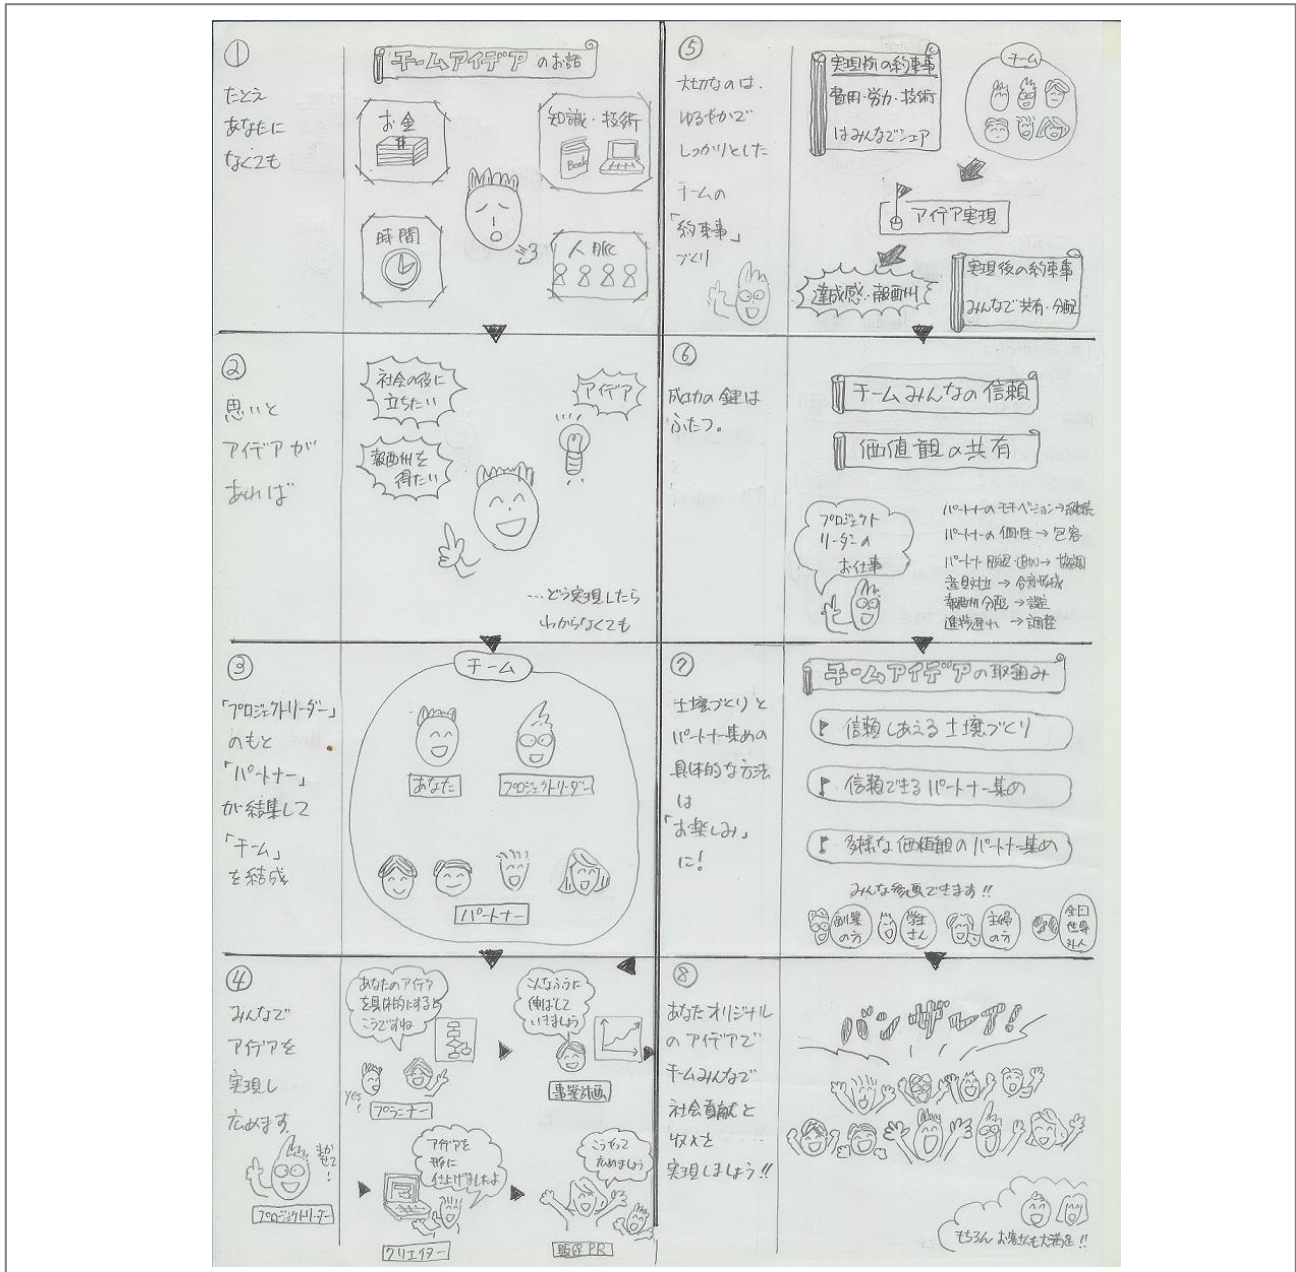 ①
たとえ
あなたに
なくても
チームアイデアのお話
お金
知識・技術
Book
時間
人脈
②
思いと
アイデアが
あれば
社会の役に
立ちたい
アイデア
報酬を
得たい
…どう実現したら
わからなくても
③
「プロジェクトリーダー」
のもと
「パートナー」
が結集して
「チーム」
を結成
チーム
あなた
プロジェクトリーダー
パートナー
④
みんなで
アイデアを
実現し
広めます。
まか
せて!
プロジェクトリーダー
あなたのアイデア
を具体的にすると
こうですね
yes!
プランナー
こんなふうに
伸ばして
いきましょう
事業計画
アイデアを
形に
仕上げましたよ
クリエイター
こうやって
広めましょう
販促PR
⑤
大切なのは、
ゆるやかで
しっかりとした
チームの
「約束事」
づくり
実現前の約束事
費用・労力・技術
はみんなでシェア
チーム
アイデア実現
達成感・報酬
実現後の約束事
みんなで共有・分配
⑥
成功の鍵は
ふたつ。
チームみんなの信頼
価値観の共有
プロジェクト
リーダーの
お仕事
パートナーのモチベーション→継続
パートナーの個性→包容
パートナー脱退・追加→協調
意見対立→合意形成
報酬分配→認定
進捗遅れ→調整
⑦
土壌づくりと
パートナー集めの
具体的な方法
は
「お楽しみ」
に!
チームアイデアの取組み
信頼しあえる土壌づくり
信頼できるパートナー集め
多様な価値観のパートナー集め
みんな参画できます!!
副業
の方
学生
さん
主婦
の方
外人
⑧
あなたオリジナル
のアイデアで
チームみんなで
社会貢献と
収入を
実現しましょう!!
バンザーイ!
もちろんお客さんも大満足!!